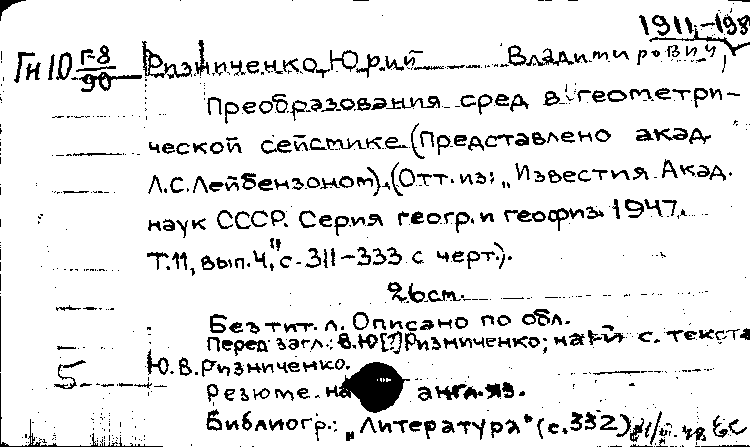 1911-198
Гн10 Г-8/90 Ризниченко, Юрий Владимирович,
Преобразования сред в геометри-
ческой сейсмике. (Представлено акад.
Л.С.Лейбензоном). (Отт. из: „Известия Акад.
наук СССР. Серия геогр. и геофиз. 1947.
Т.11, вып.4," с. 311-333 с черт.).
26см.
Без тит. л. Описано по обл.
Перед загл.: В.Ю[!] Ризниченко; на с. текста
5 Ю.В.Ризниченко.
Резюме на англ. яз.
Библиогр.: „Литература" (с.332)